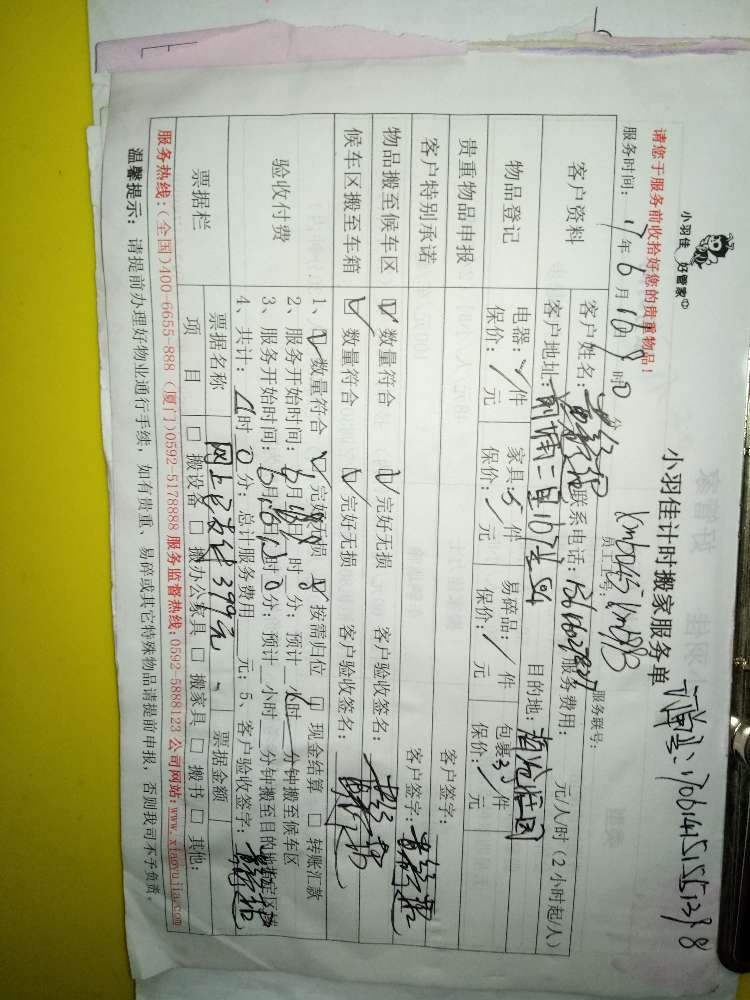 小羽佳
好管家
小羽佳计时搬家服务单
请您于服务前收拾好您的贵重物品!
员工工号:
服务联号:
服务时间: 17年6月 日 时 0分
客户资料
客户姓名: 联系电话: 服务费用: 元/人/时(2小时起/人)
客户地址: 目的地:
物品登记
电器: / 件 家具: 5 件 易碎品: / 件 包裹 35 件
保价: / 元 保价: / 元 保价: / 元 保价: / 元
贵重物品申报
客户签字:
客户特别承诺
客户签字:
物品搬至候车区 ☑ 数量符合 ☑ 完好无损 客户验收签名:
候车区搬至车箱 ☑ 数量符合 ☑ 完好无损 客户验收签名:
验收付费
1、☑ 数量符合 ☑ 完好无损 ☑ 按需归位 □ 现金结算 □ 转账汇款
2、服务开始时间: 6月 时 分; 预计 小时 分钟搬至候车区
3、服务开始时间: 6月 时 0分; 预计 小时 分钟搬至目的地指定区域
4、共计: 时 0分; 总计服务费用 元; 5、客户验收签字:
票据栏
票据名称 网上已支付399元、 票据金额
项 目 □ 搬设备 □ 搬办公家具 □ 搬家具 □ 搬书 □ 其他:
服务热线:(全国)400-6655-888 (厦门)0592-5178888 服务监督热线:0592 5888123 公司网站:www.xiaoyujia.com
温馨提示: 请提前办理好物业通行手续, 如有贵重、易碎或其它特殊物品请提前申报, 否则我司不予负责。